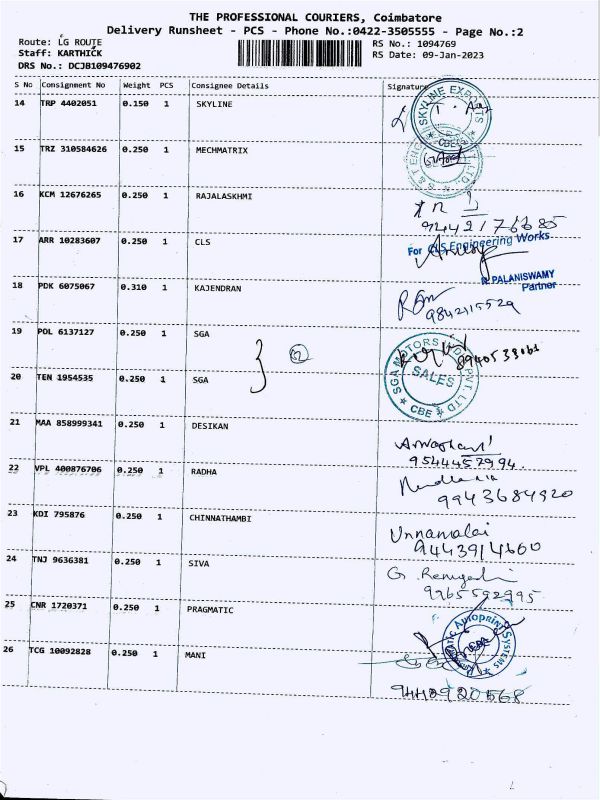 THE PROFESSIONAL COURIERS, Coimbatore
Delivery Runsheet - PCS - Phone No.:0422-3505555 - Page No.:2
Route: LG ROUTE RS No.: 1094769
Staff: KARTHICK RS Date: 09-Jan-2023
DRS No.: DCJB109476902
S No Consignment No Weight PCS Consignee Details Signature
14 TRP 4402051 0.150 1 SKYLINE
SKYLINE EXPORTS CBE
15 TRZ 310584626 0.250 1 MECHMATRIX
16 KCM 12676265 0.250 1 RAJALASKHMI
9442176685
17 ARR 10283607 0.250 1 CLS
For CLS Engineering Works
PALANISWAMY
Partner
18 PDK 6075067 0.310 1 KAJENDRAN
9842115529
19 POL 6137127 0.250 1 SGA
SGA MOTORS INDIA PVT. LTD
SALES
CBE
20 TEN 1954535 0.250 1 SGA
21 MAA 858999341 0.250 1 DESIKAN
9544457994
22 VPL 400876706 0.250 1 RADHA
9943684920
23 KDI 795876 0.250 1 CHINNATHAMBI
Unnamalai
9443914600
24 TNJ 9636381 0.250 1 SIVA
9965592995
25 CNR 1720371 0.250 1 PRAGMATIC
26 TCG 10092828 0.250 1 MANI